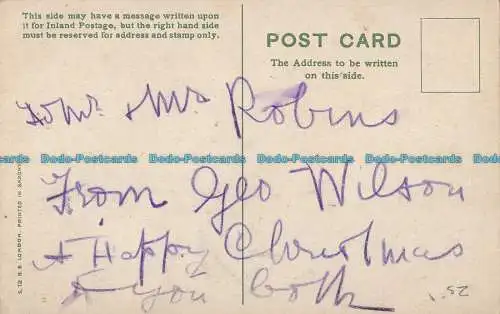 This side may have a message written upon
it for Inland Postage, but the right hand side
must be reserved for address and stamp only.
POST CARD
The Address to be written
on this side.
To Mr & Mrs Robins
Dodo-Postcards Dodo-Postcards Dodo-Postcards Dodo-Postcards
From Geo Wilson
A Happy Christmas
to you both
S. 12 B.B. LONDON. PRINTED IN SAXONY
25